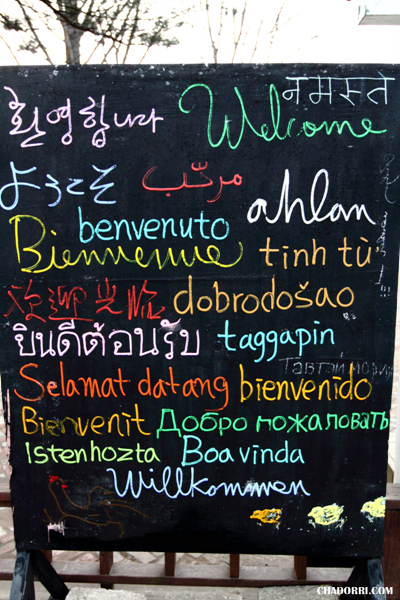 नमस्ते
환영합니다 Welcome
ようこそ مرحّب ahlan
benvenuto
Bienvenue tinh tù
欢迎光临 dobrodošao
ยินดีต้อนรับ taggapin
Selamat datang bienvenido
Bienvenit Добро пожаловать
Istenhozta Boavinda
Willkommen
CHADORRI.COM